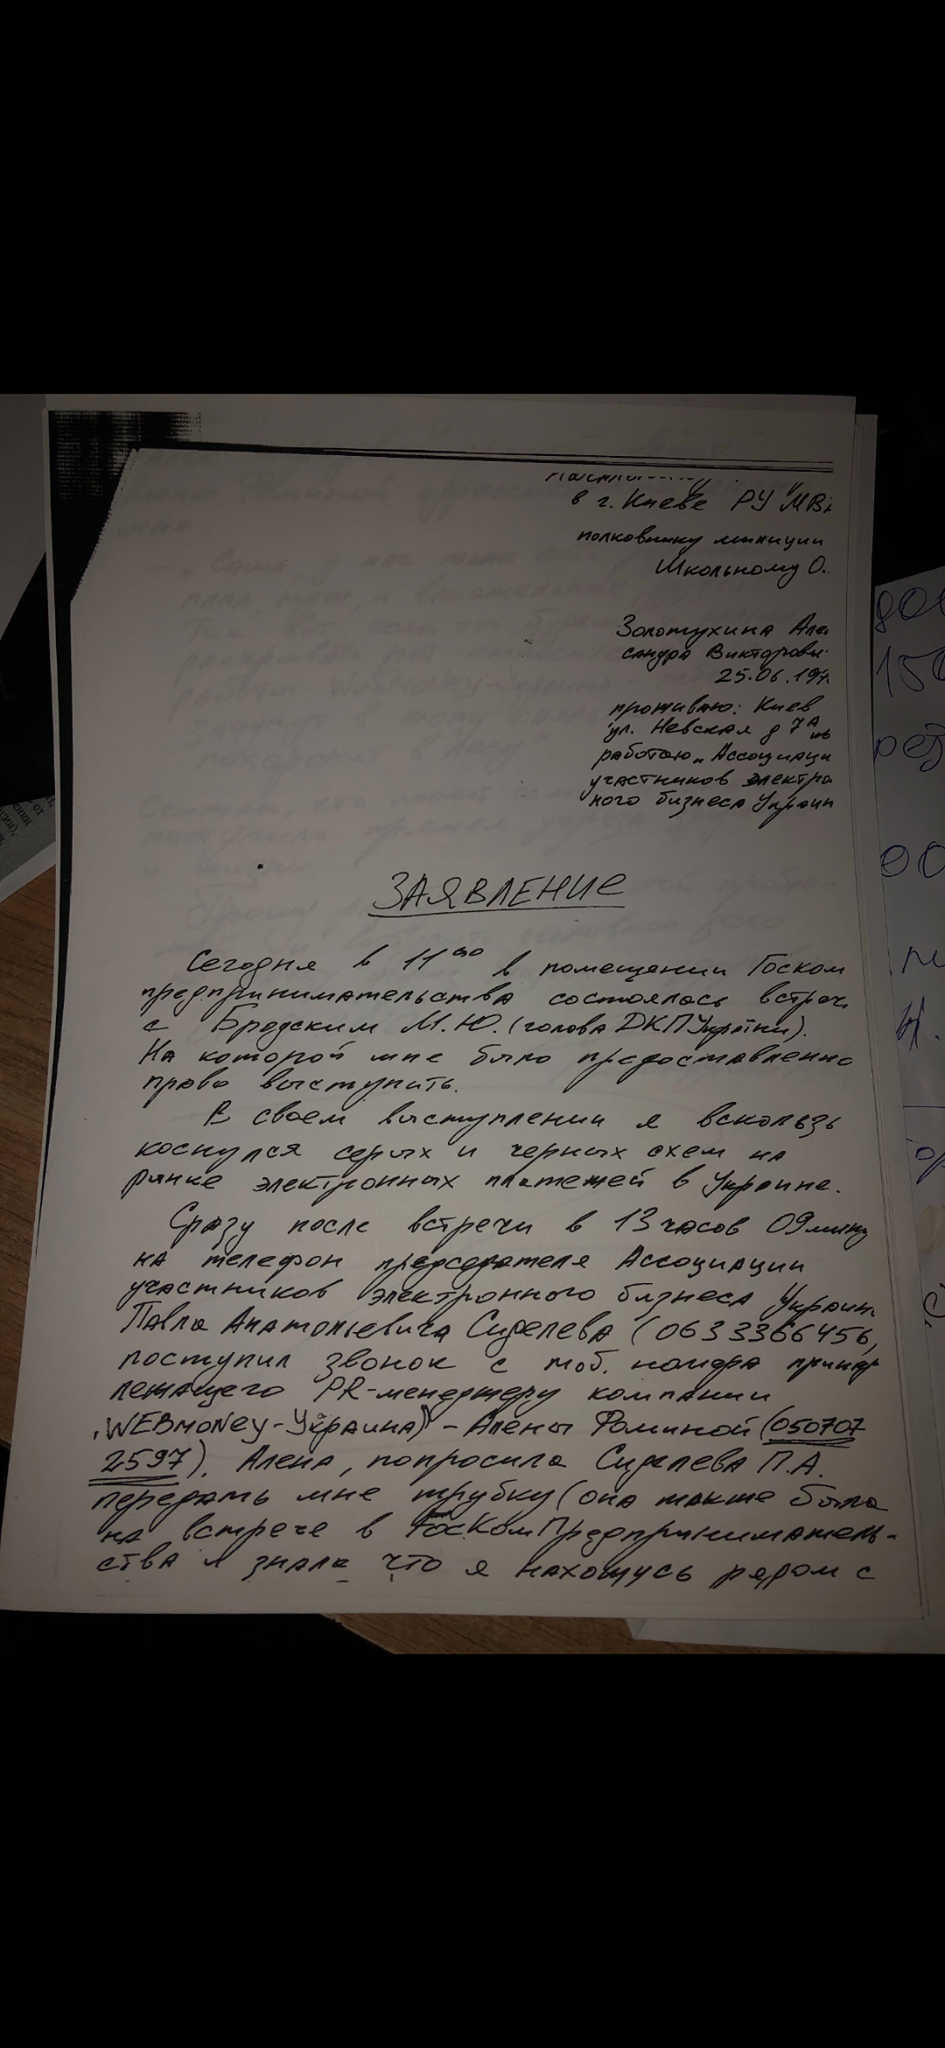 в г. Киеве РУ МВ
полковнику милиции
Школьному О.
Золотухина Але
сандра Викторови
25.06.197
проживаю: Киев
ул. Невская д 7А
работаю „Ассоциаци
участников электро
ного бизнеса Украин
ЗАЯВЛЕНИЕ
Сегодня в 11⁰⁰ в помещении Госком
предпринимательства состоялась встреч
с Бродским М.Ю. (голова ДКПУкраїни).
На которой мне было предоставленно
право выступить.
В своем выступлении я вскользь
коснулся серых и черных схем на
рынке электронных платежей в Украине.
Сразу после встречи в 13 часов 09 мину
на телефон председателя Ассоциации
участников электронного бизнеса Украин
Павла Анатольевича Сиделева (0633366456,
поступил звонок с моб. номера принад
лежащего PR-менеджеру компании
„WEBMONEY-Украина" - Алены Фоминой (050707
2597). Алена, попросила Сиделева П.А.
передать мне трубку (она также была
на встрече в ГосКомПредприниматель-
ства и знала что я нахожусь рядом с